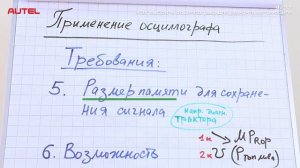 AUTEL
Применение осцилографа
Требования:
5. Размер памяти для сохране-
ния сигнала
напр. диагн.
трактора
1к
MPROP
2к
(Pтоплива)
6. Возможность